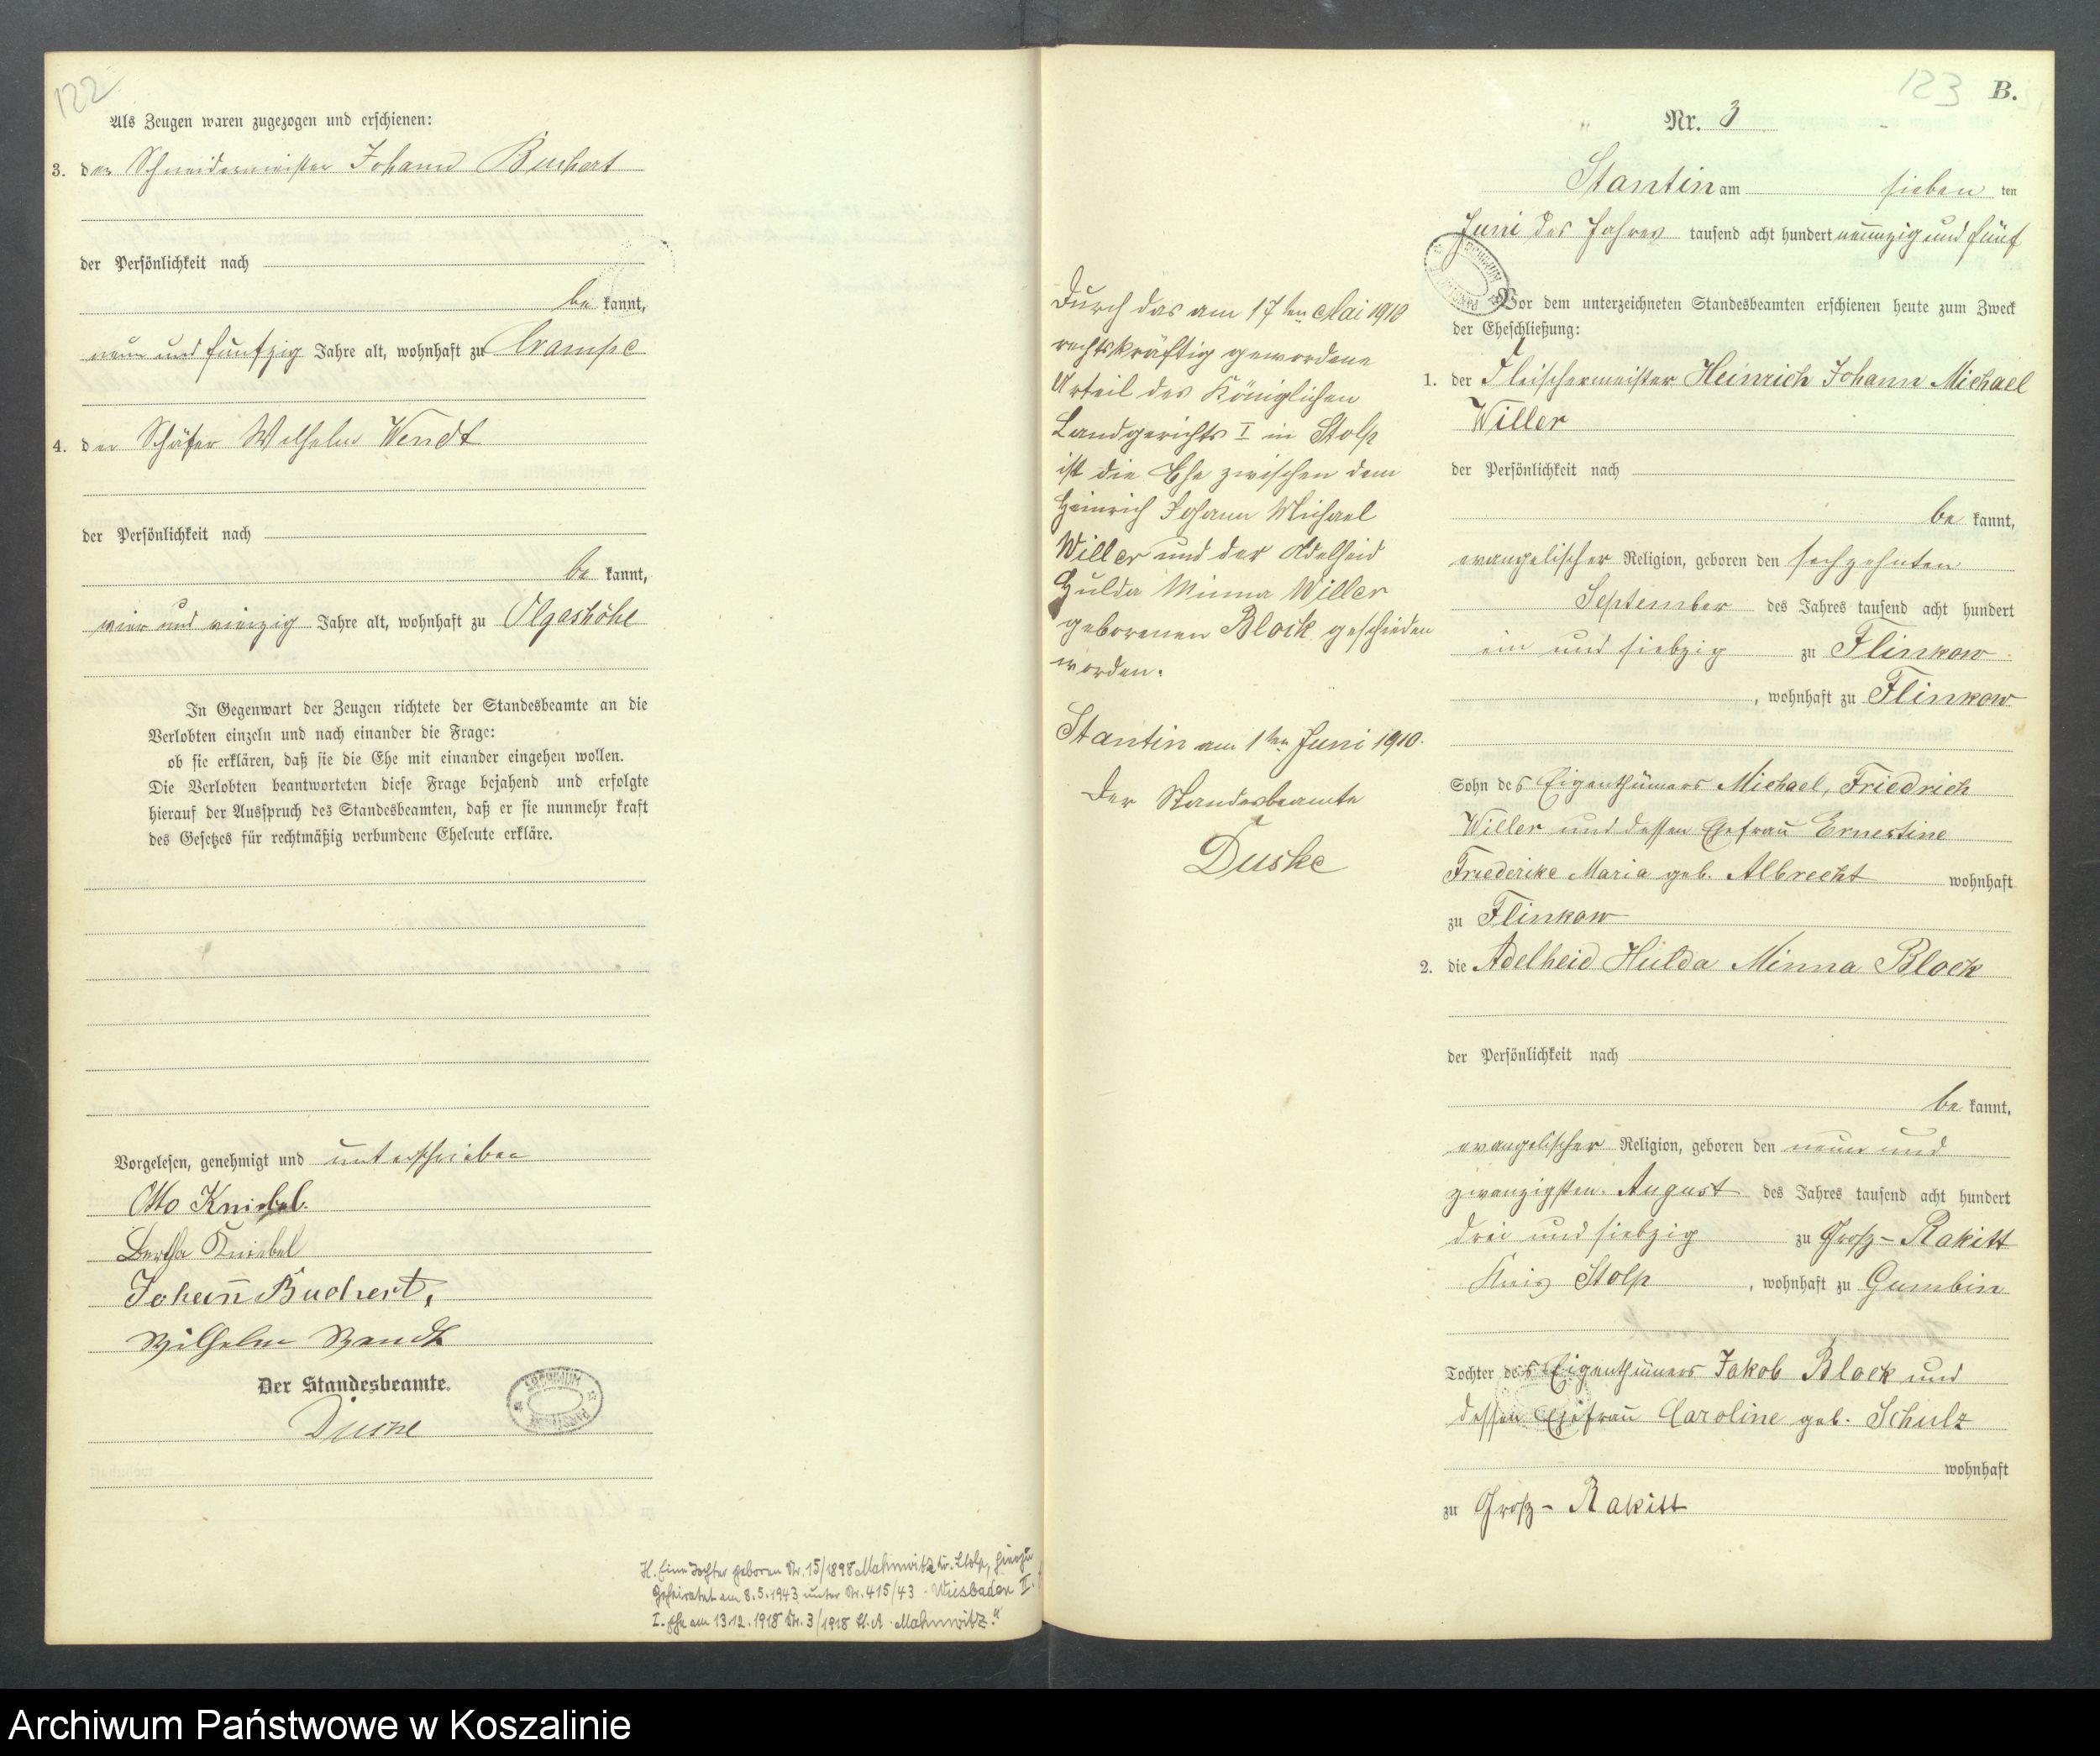 122
Als Zeugen waren zugezogen und erschienen:
3. der Schneidermeister Johann Buchert
der Persönlichkeit nach
be kannt,
neun und fünfzig Jahre alt, wohnhaft zu Crampe
4. der Schäfer Wilhelm Wendt
der Persönlichkeit nach
be kannt,
vier und vierzig Jahre alt, wohnhaft zu Olgashöhe
In Gegenwart der Zeugen richtete der Standesbeamte an die
Verlobten einzeln und nach einander die Frage:
ob sie erklären, daß sie die Ehe mit einander eingehen wollen.
Die Verlobten beantworteten diese Frage bejahend und erfolgte
hierauf der Ausspruch des Standesbeamten, daß er sie nunmehr kraft
des Gesetzes für rechtmäßig verbundene Eheleute erkläre.
Vorgelesen, genehmigt und unterschrieben
Otto Kniebel.
Bertha Kniebel
Johann Buchert,
Wilhelm Wendt
Der Standesbeamte.
Duske
H. Eine Tochter geboren Nr. 15/1898 Mahnwitz Kr. Stolp, hierzu
Geheiratet am 8.5.1943 unter Nr. 415/43 - Wiesbaden II.
I. Ehe am 13.12.1918 Nr. 3/1918 St.A. Mahnwitz."
Durch das am 17ten Mai 1910
rechtskräftig gewordene
Urteil des Königlichen
Landgerichts I in Stolp
ist die Ehe zwischen dem
Heinrich Johann Michael
Willer und der Adelheid
Hulda Minna Willer
geborenen Block geschieden
worden.
Stantin am 1ten Juni 1910.
Der Standesbeamte
Duske
123 B.
Nr. 3
Stantin am sieben ten
Juni des Jahres tausend acht hundert neunzig und fünf
Vor dem unterzeichneten Standesbeamten erschienen heute zum Zweck
der Eheschließung:
1. der Fleischermeister Heinrich Johann Michael
Willer
der Persönlichkeit nach
be kannt,
evangelischer Religion, geboren den sechzehnten
September des Jahres tausend acht hundert
ein und siebzig zu Flinkow
, wohnhaft zu Flinkow
Sohn des Eigenthümers Michael, Friedrich
Willer und dessen Ehefrau Ernestine
Friederike Maria geb. Albrecht wohnhaft
zu Flinkow
2. die Adelheid Hulda Minna Block
der Persönlichkeit nach
be kannt,
evangelischer Religion, geboren den neun und
zwanzigsten August des Jahres tausend acht hundert
drei und siebzig zu Groß-Rakitt
Kreis Stolp, wohnhaft zu Gumbin
Tochter des Eigenthümers Jakob Block und
dessen Ehefrau Caroline geb. Schulz
wohnhaft
zu Groß-Rakitt
Archiwum Państwowe w Koszalinie